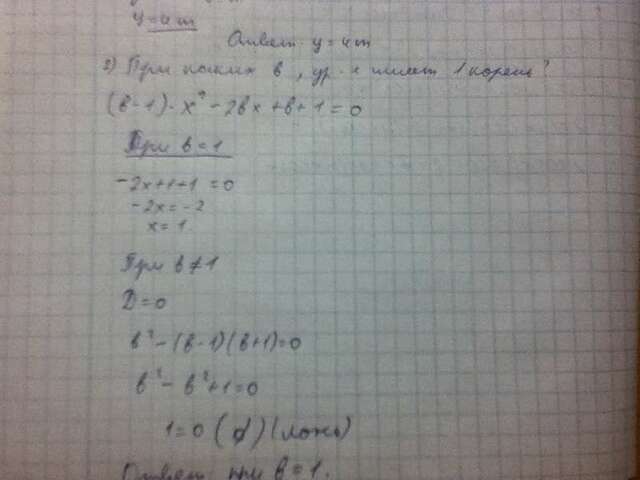 y=4m
Ответ: y=4m
2) При каких в, ур-е имеет 1 корень?
(в-1)·x²-2вx+в+1=0
При в=1
-2x+1+1=0
-2x=-2
x=1
При в≠1
D=0
в²-(в-1)(в+1)=0
в²-в²+1=0
1=0 (ложь)
Ответ: при в=1.